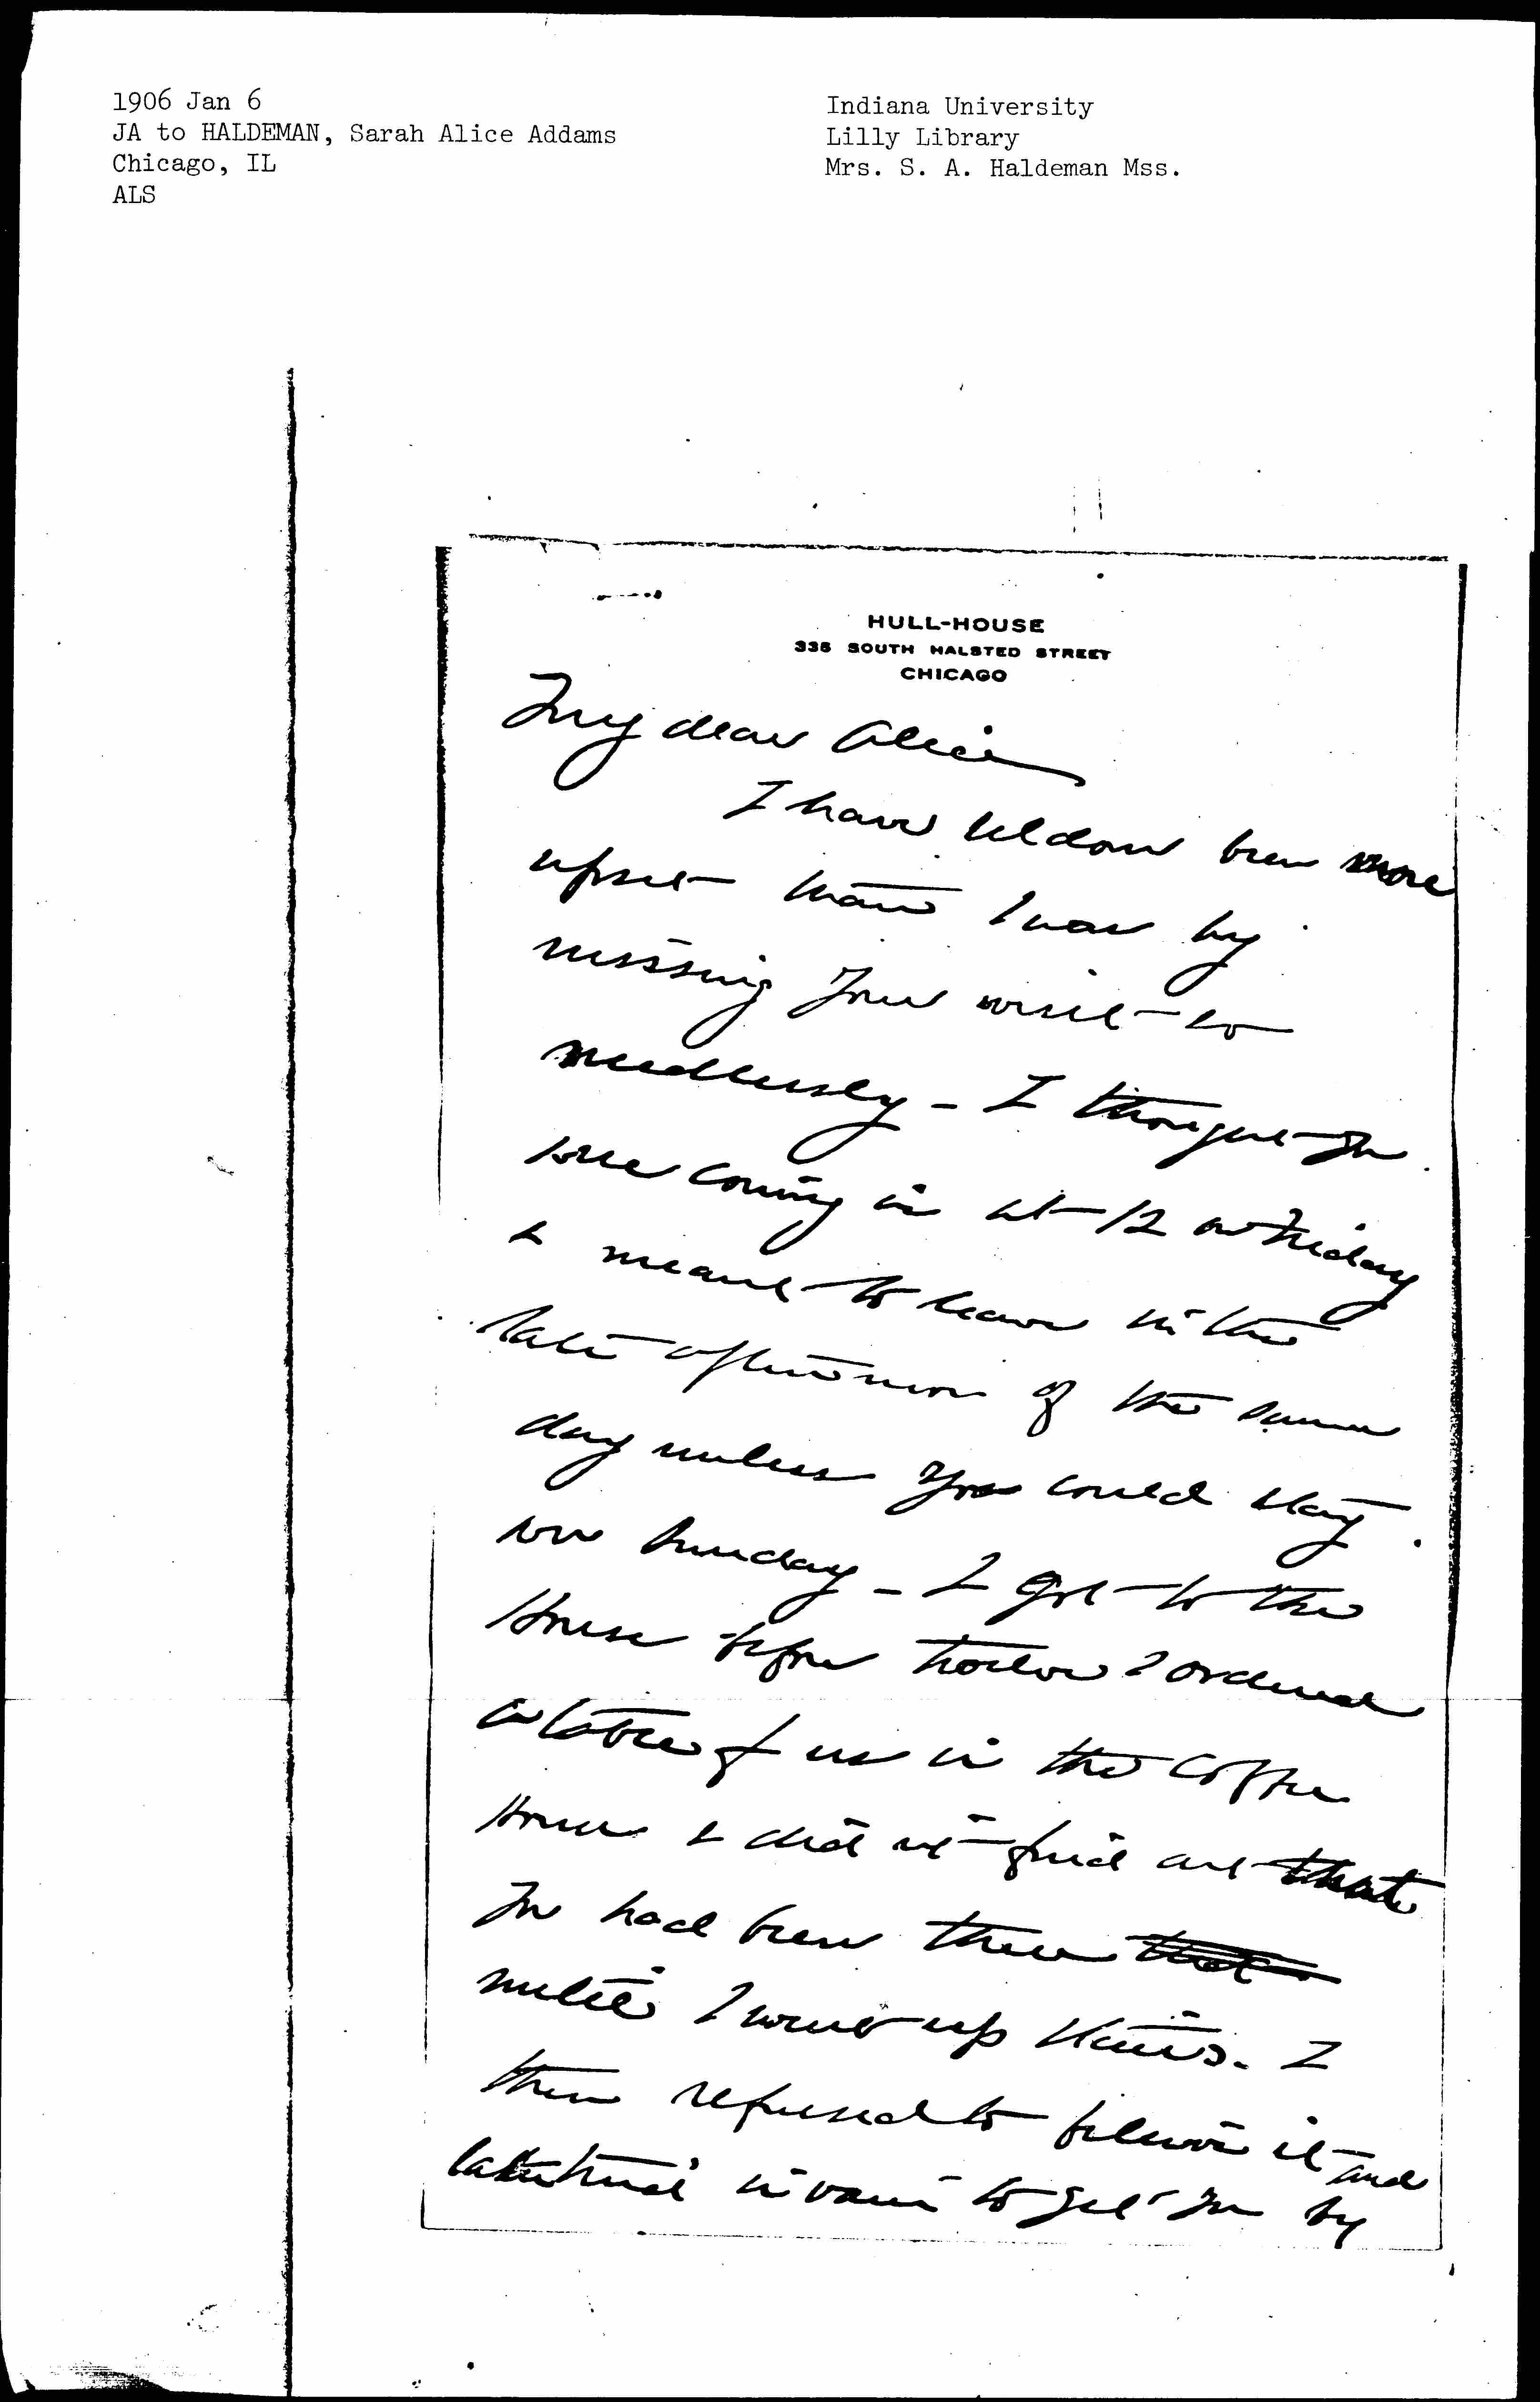 1906 Jan 6
JA to HALDEMAN, Sarah Alice Addams
Chicago, IL
ALS
Indiana University
Lilly Library
Mrs. S. A. Haldeman Mss.
HULL-HOUSE
335 SOUTH HALSTED STREET
CHICAGO
My dear Alice
I have seldom been more
upset than I was by
missing your visit so
needlessly - I thought you
were coming in at 12 on Friday
& meant to leave in the
late afternoon of the same
day unless you could stay
over Sunday - I got to the
House before twelve & ordered
a table for us in the Coffee
House & did not find out that
you had been there that
until I went up stairs. I
then refused to believe it and
later tried in vain to get you by